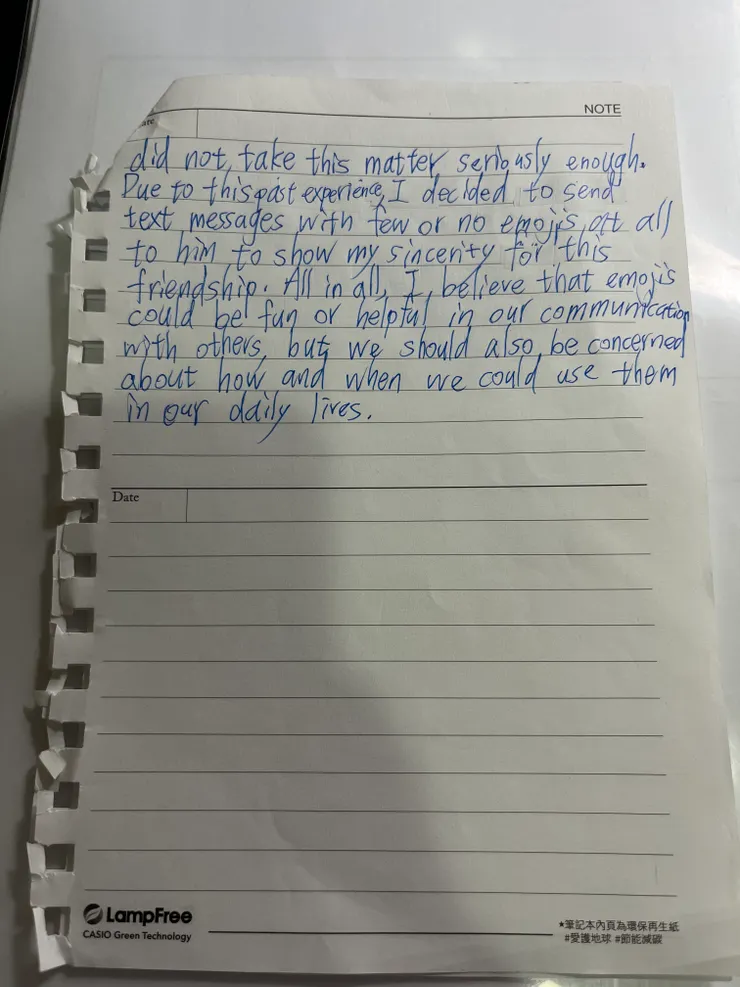 NOTE
ate
did not take this matter seriously enough.
Due to this past experience, I decided to send
text messages with few or no emojis at all
to him to show my sincerity for this
friendship. All in all, I believe that emojis
could be fun or helpful in our communication
with others, but we should also be concerned
about how and when we could use them
in our daily lives.
Date
LampFree
CASIO Green Technology
★筆記本內頁為環保再生紙
#愛護地球 #節能減碳